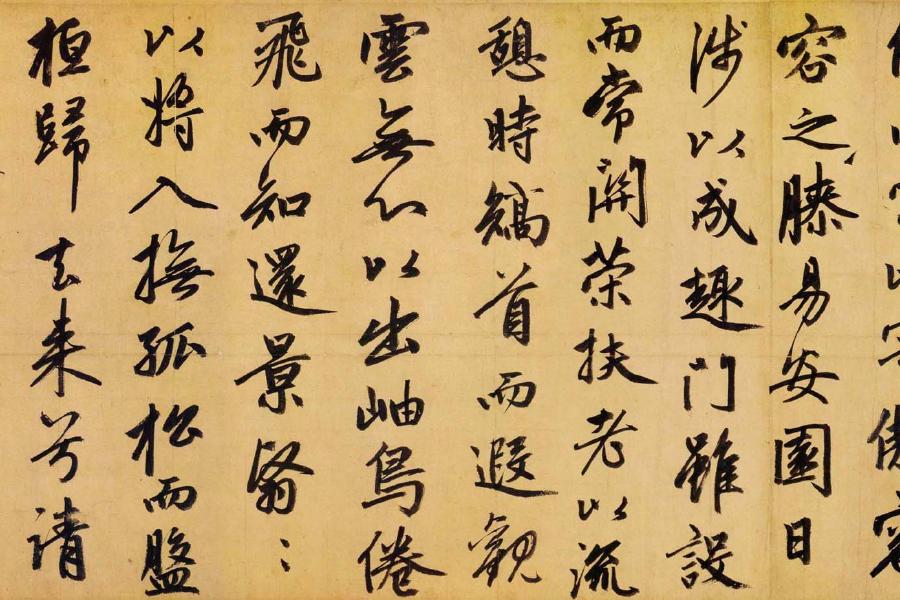 容之膝易安園日
涉以成趣門雖設
而常關策扶老以流
憩時矯首而遐觀
雲無心以出岫鳥倦
飛而知還景翳〻
以將入撫孤松而盤
桓歸去来兮請